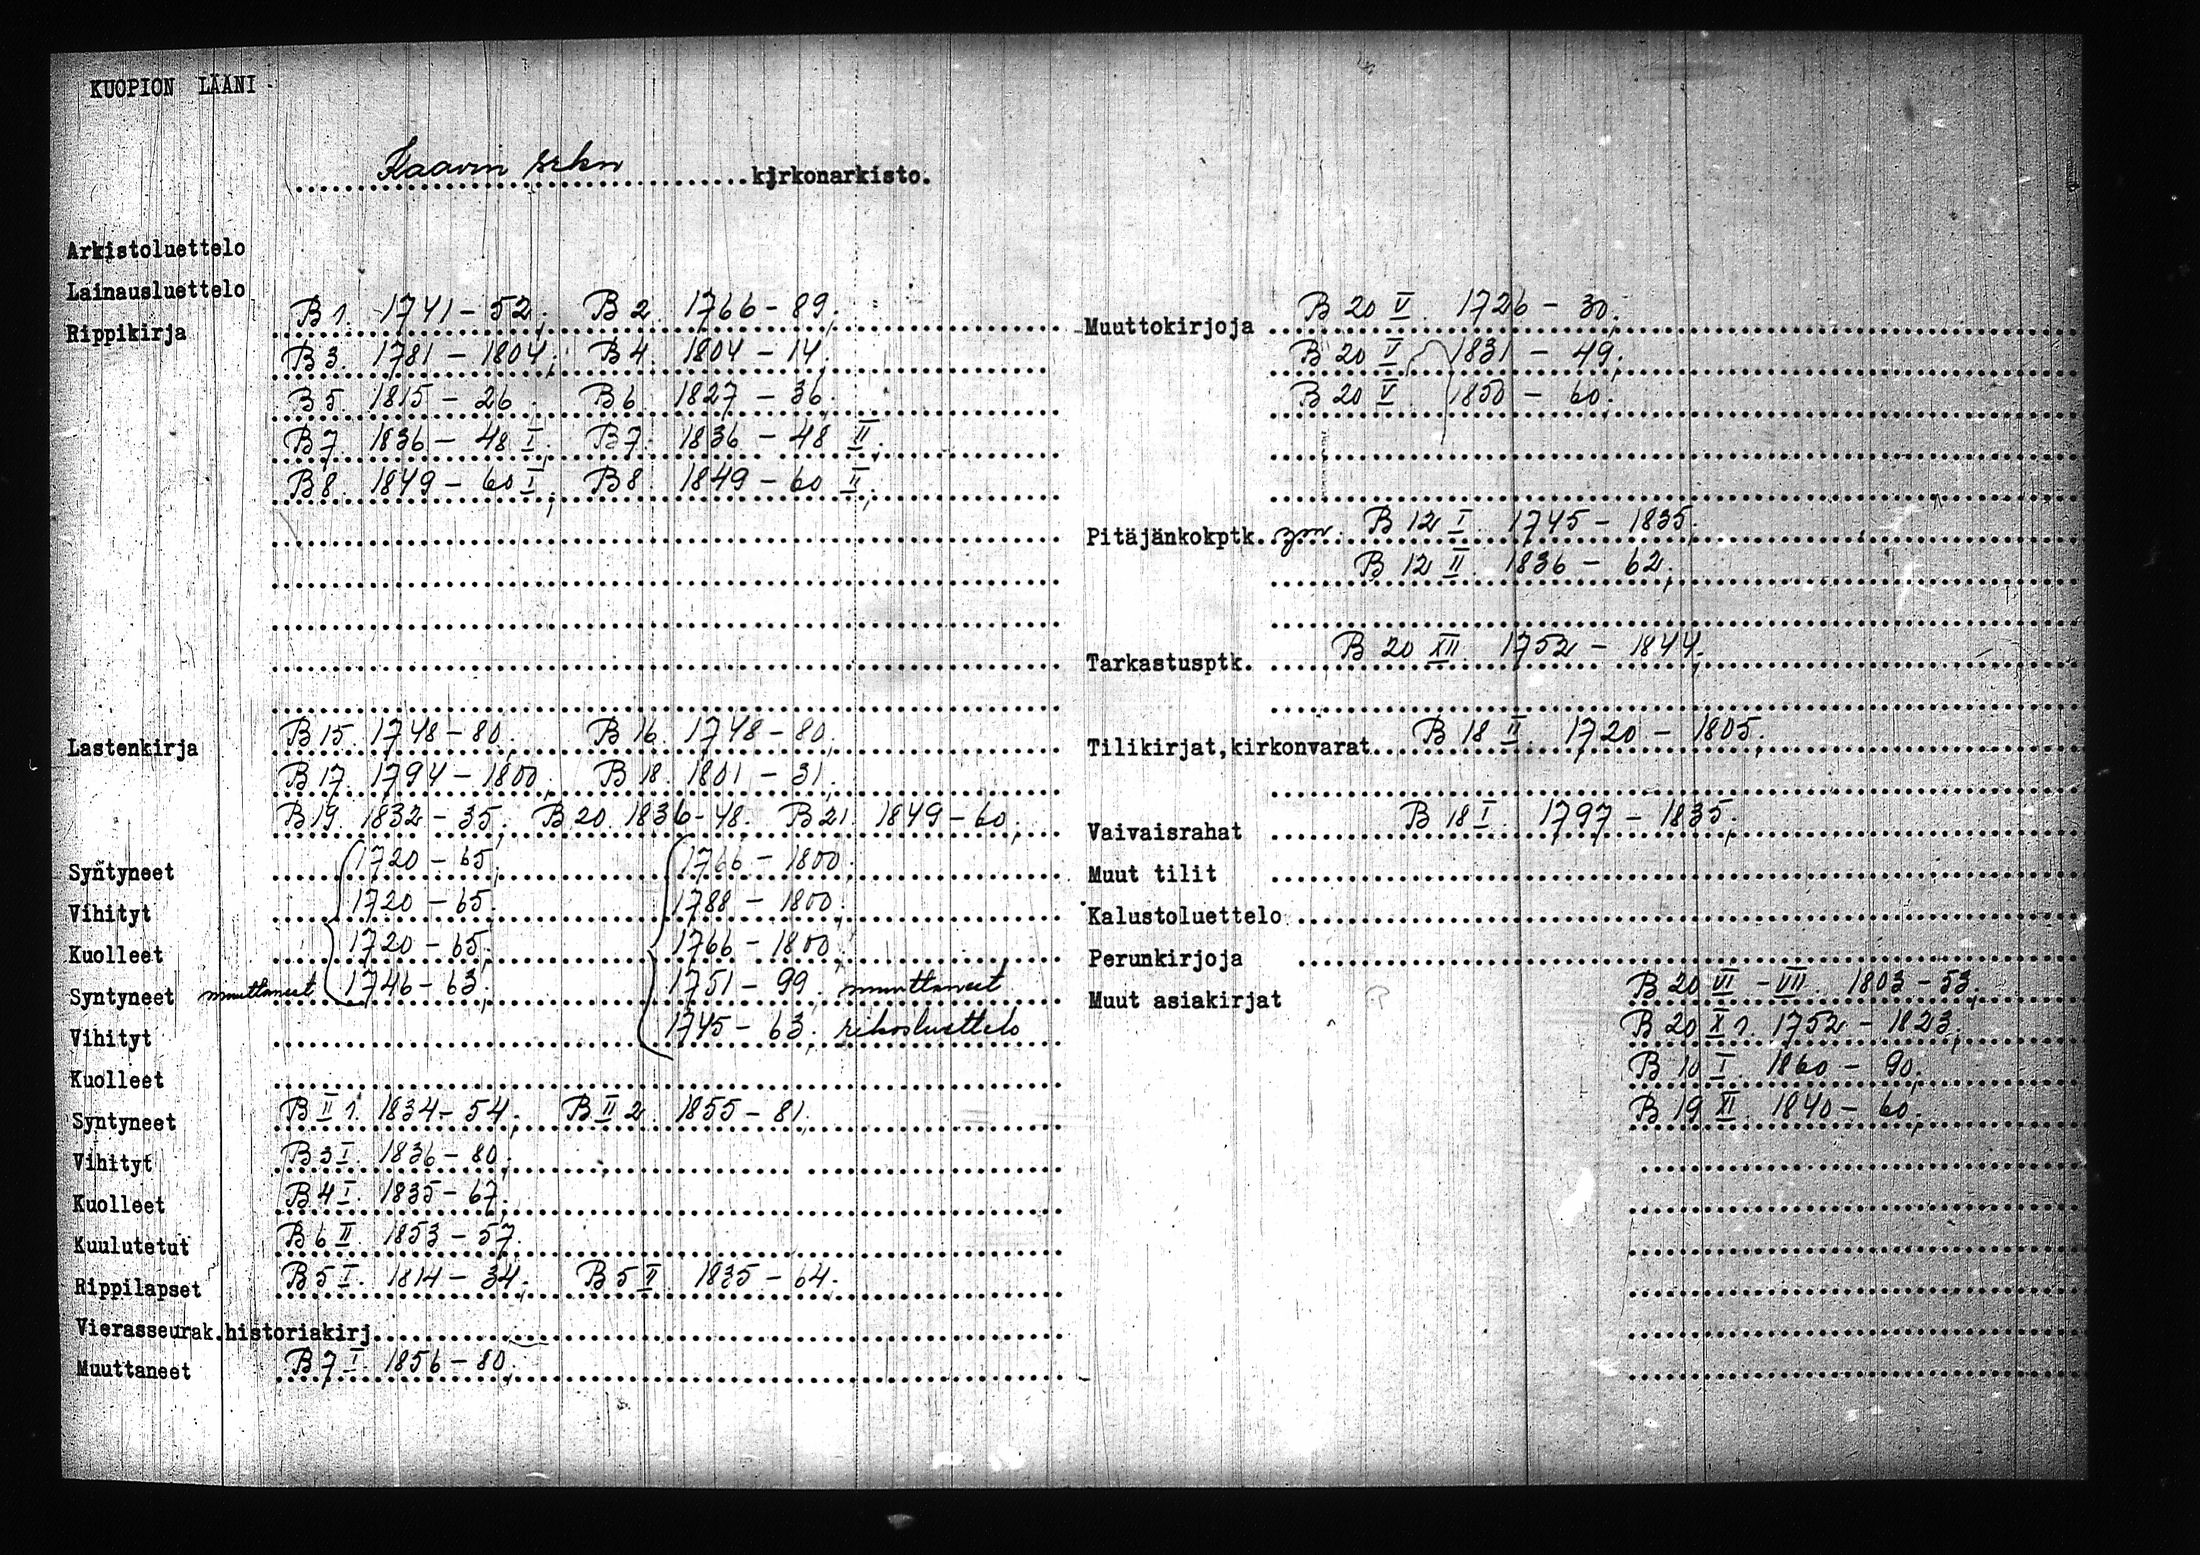 KUOPION LÄÄNI
Kaavin srkn kirkonarkisto.
Arkistoluettelo
Lainausluettelo
Rippikirja B 1. 1741 - 52; B 2. 1766 - 89;
B 3. 1781 - 1804; B 4. 1804 - 14;
B 5. 1815 - 26; B 6. 1827 - 36;
B 7. 1836 - 48 I; B 7. 1836 - 48 II;
B 8. 1849 - 60 I; B 8. 1849 - 60 II;
Lastenkirja B 15. 1748 - 80; B 16. 1748 - 80;
B 17. 1794 - 1800; B 18. 1801 - 31;
B 19. 1832 - 35; B 20. 1836 - 48. B 21. 1849 - 60;
Syntyneet 1720 - 65; 1766 - 1800;
Vihityt 1720 - 65; 1788 - 1800;
Kuolleet 1720 - 65; 1766 - 1800;
Syntyneet muuttaneet 1746 - 63; 1751 - 99. muuttaneet
Vihityt 1745 - 63; rikosluettelo
Kuolleet
Syntyneet B II 1. 1834 - 54; B II 2. 1855 - 81;
Vihityt B 3 I. 1836 - 80;
Kuolleet B 4 I. 1835 - 67;
Kuulutetut B 6 II. 1853 - 57.
Rippilapset B 5 I. 1814 - 34; B 5 II. 1835 - 64.
Vierasseurak.historiakirj.
Muuttaneet B 7 I. 1856 - 80;
Muuttokirjoja B 20 V. 1726 - 30;
B 20 V 1831 - 49;
B 20 V. 1850 - 60;
Pitäjänkokptk. ym. B 12 I. 1745 - 1835;
B 12 II. 1836 - 62;
Tarkastusptk. B 20 XII. 1752 - 1844;
Tilikirjat,kirkonvarat B 18 II. 1720 - 1805;
Vaivaisrahat B 18 I. 1797 - 1835;
Muut tilit
Kalustoluettelo
Perunkirjoja
Muut asiakirjat B 20 VI - VII. 1803 - 53;
B 20 X 1. 1752 - 1823;
B 10 I. 1860 - 90;
B 19 XI. 1840 - 60;